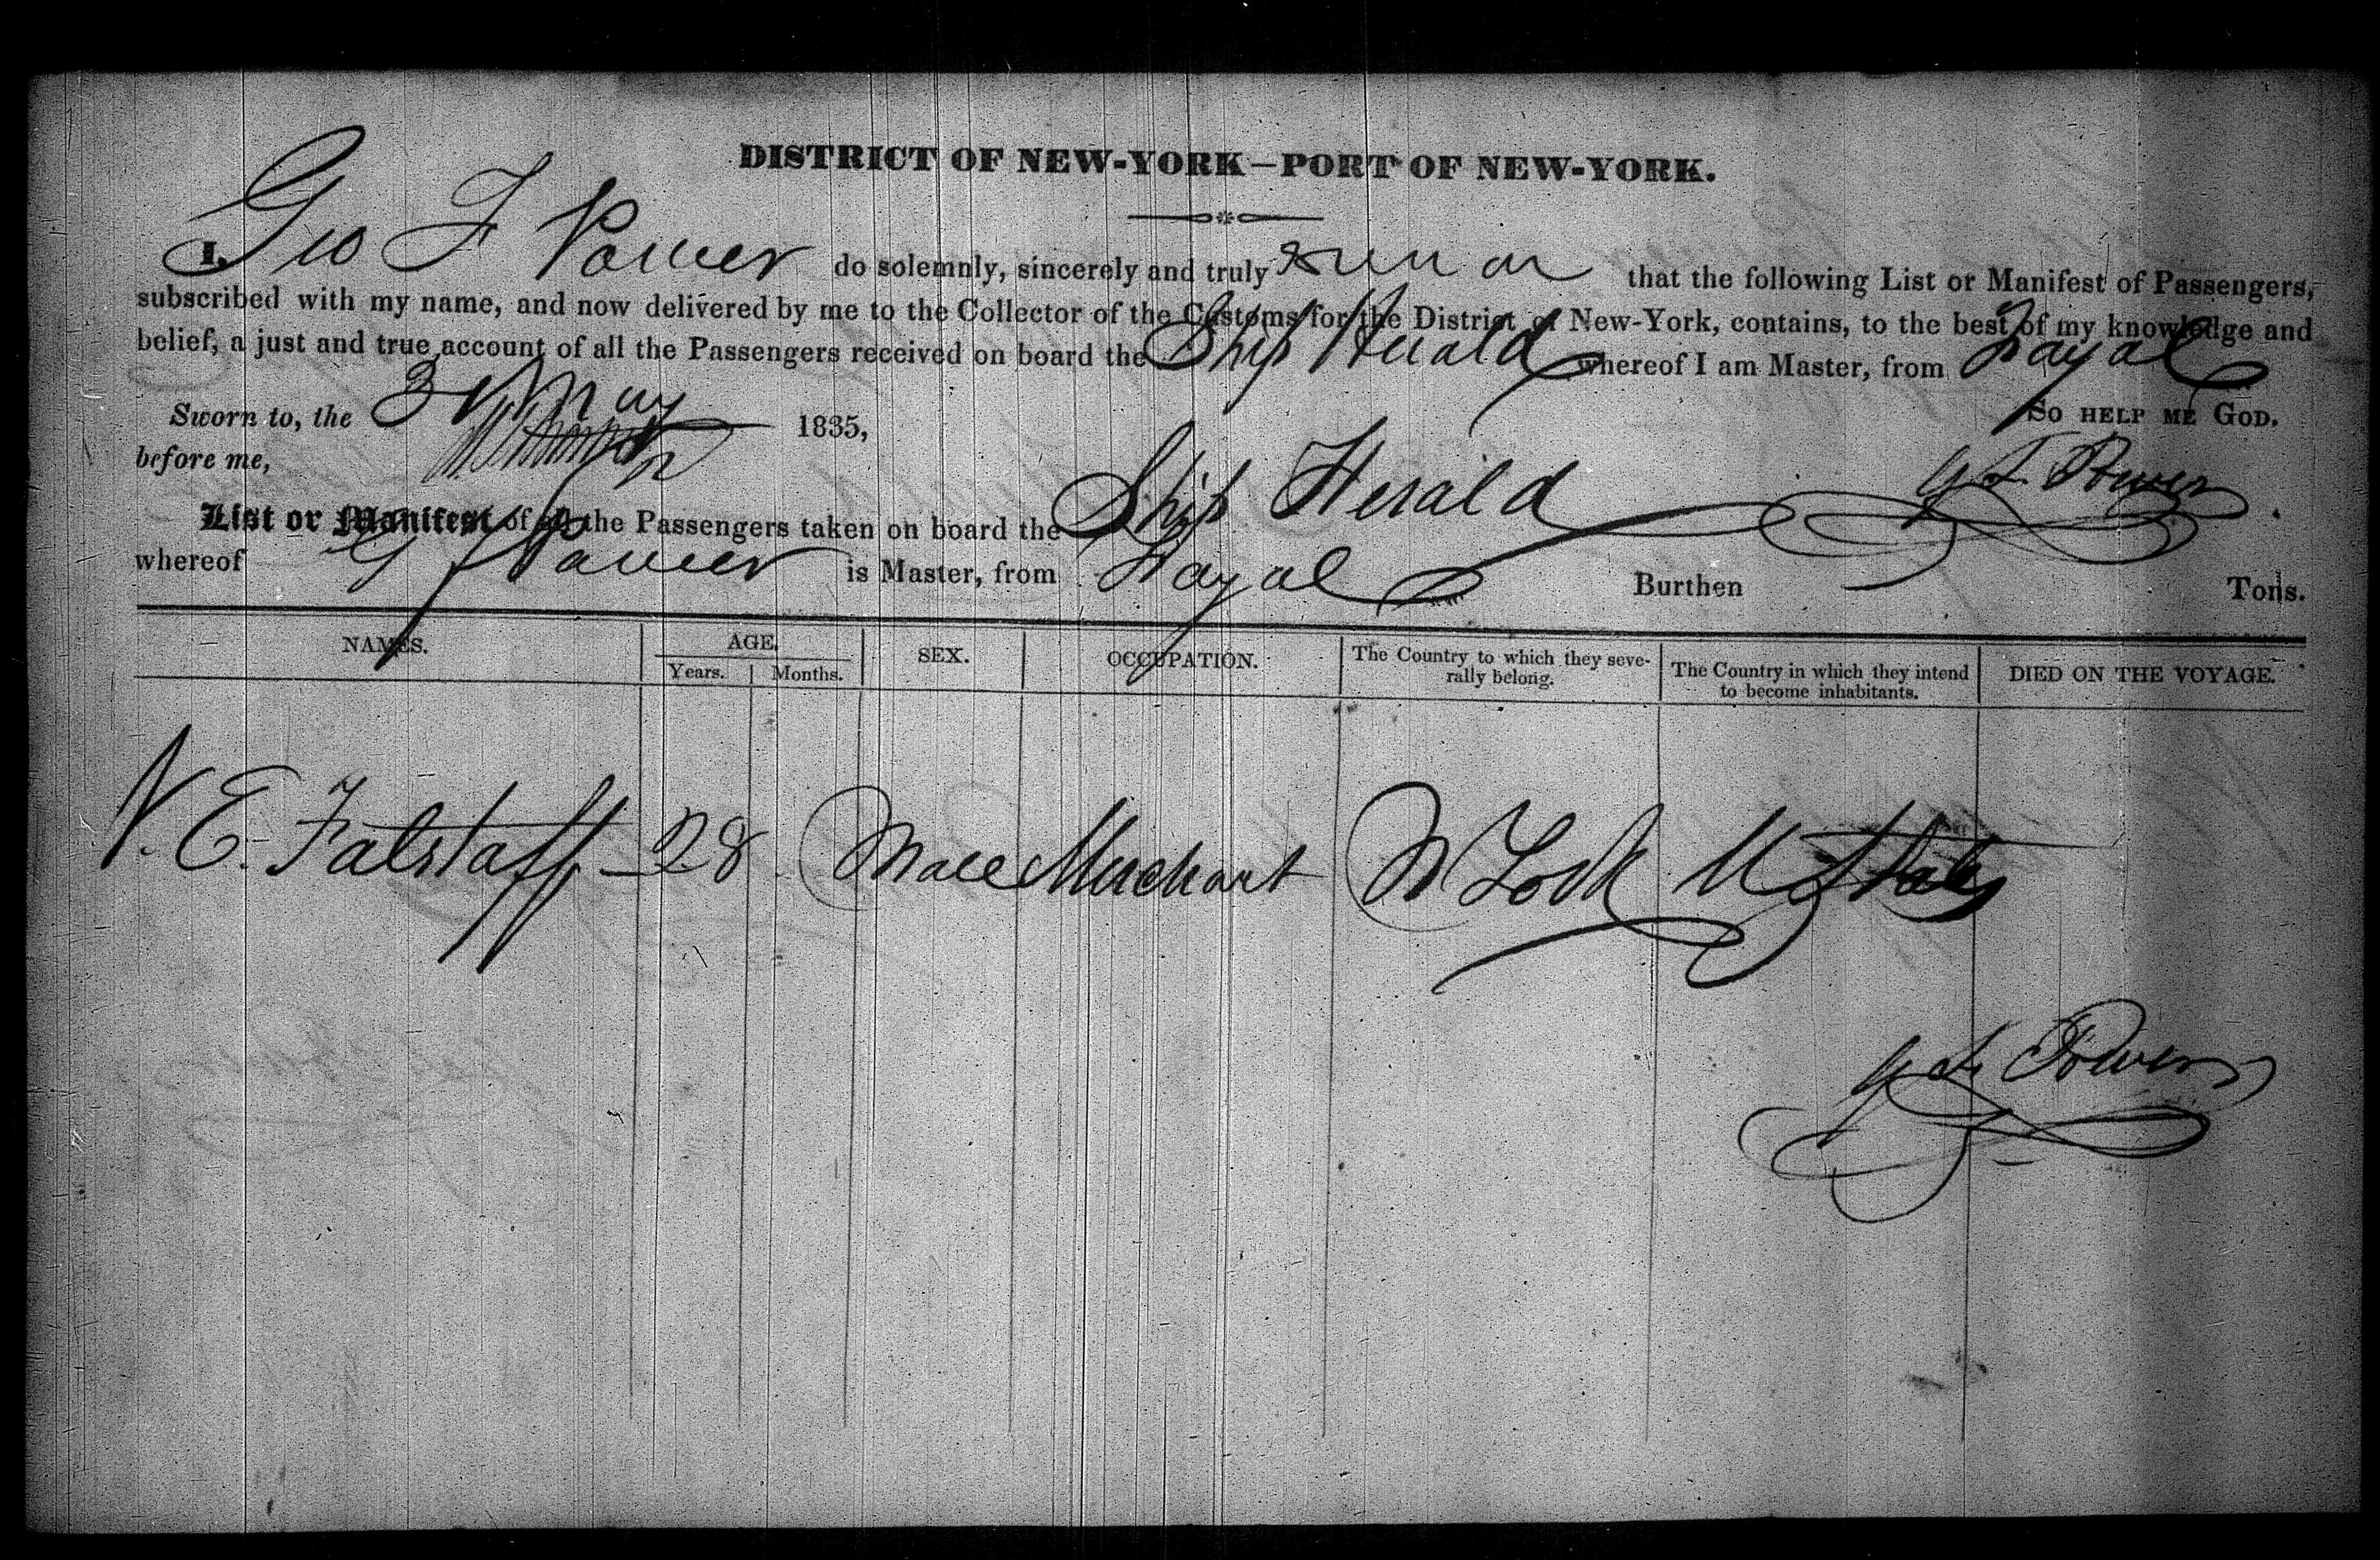 DISTRICT OF NEW-YORK—PORT OF NEW-YORK.
I, Geo F Power do solemnly, sincerely and truly swear that the following List or Manifest of Passengers,
subscribed with my name, and now delivered by me to the Collector of the Customs for the District of New-York, contains, to the best of my knowledge and
belief, a just and true account of all the Passengers received on board the Ship Herald whereof I am Master, from Fayal
Sworn to, the 3 May 1835, So help me God.
before me, G F Power
List or Manifest of all the Passengers taken on board the Ship Herald
whereof G F Power is Master, from Fayal Burthen Tons.
NAMES. AGE. SEX. OCCUPATION. The Country to which they seve- The Country in which they intend DIED ON THE VOYAGE.
Years. Months. rally belong. to become inhabitants.
N. E. Falstaff 28 Male Merchant N York U States
G F Power